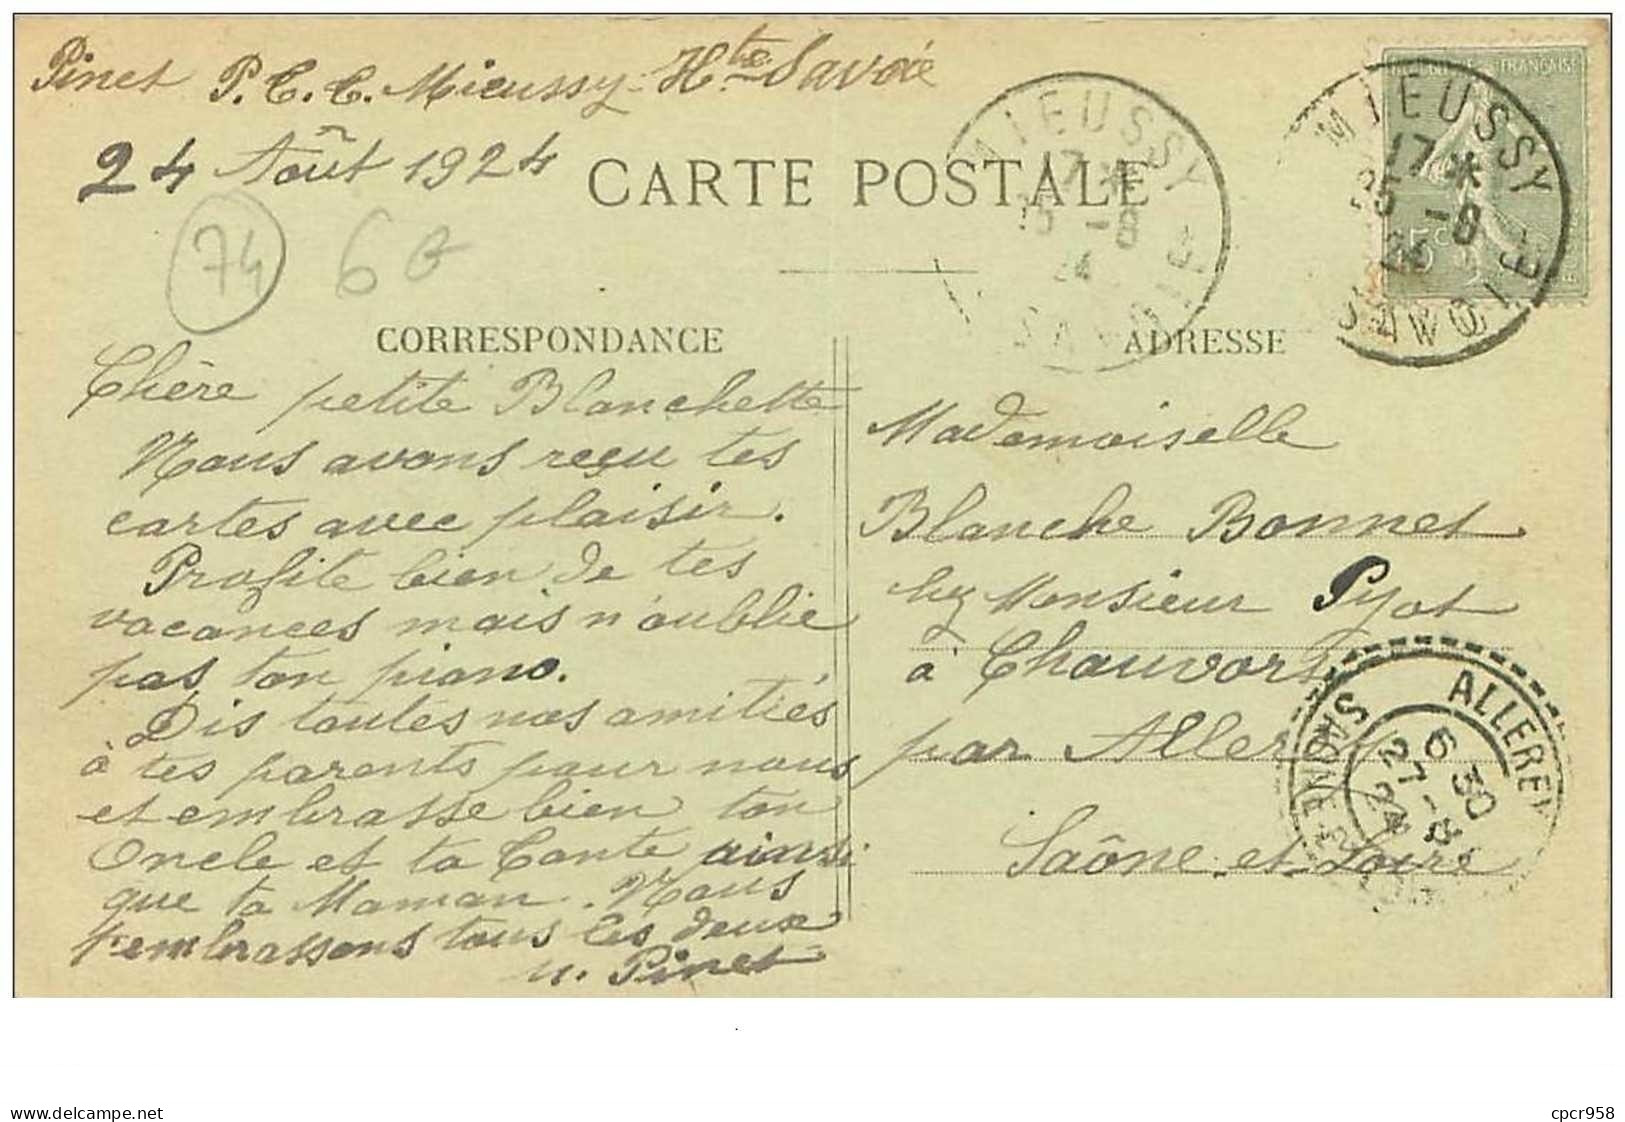 Pinet P.C.C. Mieussy. Hte Savoie
24 Août 1924
CARTE POSTALE
MIEUSSY
17 *
25 -8
24
HTE SAVOIE
MIEUSSY
17 *
25 -8
24
HTE SAVOIE
FRANÇAISE
15c
74
6
CORRESPONDANCE
ADRESSE
Chère petite Blanchette
Nous avons reçu tes
cartes avec plaisir.
Profite bien de tes
vacances mais n'oublie
pas ton piano.
Dis toutes nos amitiés
à tes parents pour nous
et embrasse bien ton
Oncle et ta Tante ainsi
que ta Maman. Nous
t'embrassons tous les deux
M. Pinet
Mademoiselle
Blanche Bonnet
chez Monsieur Pyot
à Chauvort
par Allerey
Saône-et-Loire
ALLEREY
6 30
27 -8
24
SAONE-ET-LOIRE
www.delcampe.net
cpcr958